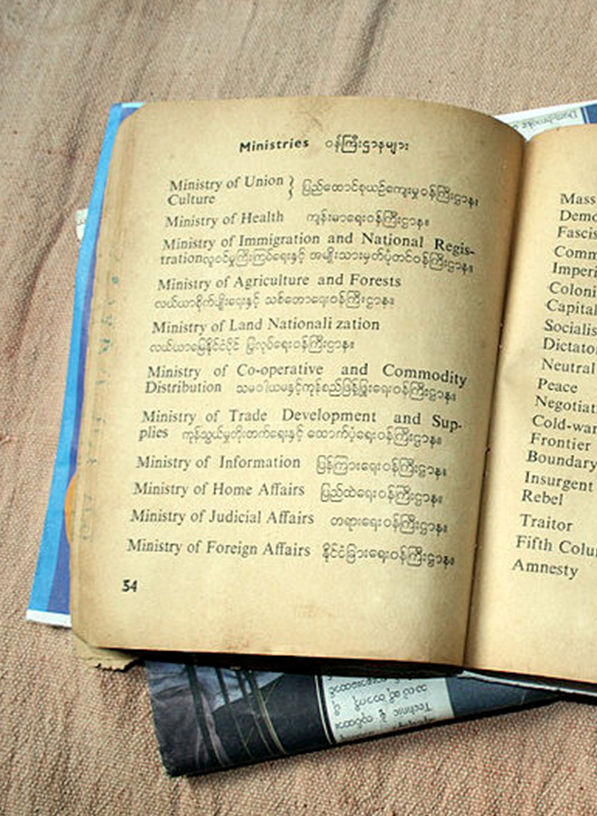 Ministries ဝန်ကြီးဌာနများ
Ministry of Union } ပြည်ထောင်စုယဉ်ကျေးမှုဝန်ကြီးဌာန။
Culture
Ministry of Health ကျန်းမာရေးဝန်ကြီးဌာန။
Ministry of Immigration and National Regis-
trationလူဝင်မှုကြီးကြပ်ရေးနှင့် အမျိုးသားမှတ်ပုံတင်ဝန်ကြီးဌာန။
Ministry of Agriculture and Forests
လယ်ယာစိုက်ပျိုးရေးနှင့် သစ်တောရေးဝန်ကြီးဌာန။
Ministry of Land Nationali zation
လယ်ယာမြေနိုင်ငံပိုင် ပြုလုပ်ရေးဝန်ကြီးဌာန။
Ministry of Co-operative and Commodity
Distribution သမဝါယမနှင့်ကုန်စည်ဖြန့်ဖြူးရေးဝန်ကြီးဌာန။
Ministry of Trade Development and Sup-
plies ကုန်သွယ်မှုတိုးတက်ရေးနှင့် ထောက်ပံ့ရေးဝန်ကြီးဌာန။
Ministry of Information ပြန်ကြားရေးဝန်ကြီးဌာန။
Ministry of Home Affairs ပြည်ထဲရေးဝန်ကြီးဌာန။
Ministry of Judicial Affairs တရားရေးဝန်ကြီးဌာန။
Ministry of Foreign Affairs နိုင်ငံခြားရေးဝန်ကြီးဌာန။
54
Mass
Demo
Fascis
Comm
Imperi
Coloni
Capital
Socialis
Dictato
Neutral
Peace
Negotiat
Cold-war
Frontier
Boundary
Insurgent
Rebel
Traitor
Fifth Colu
Amnesty